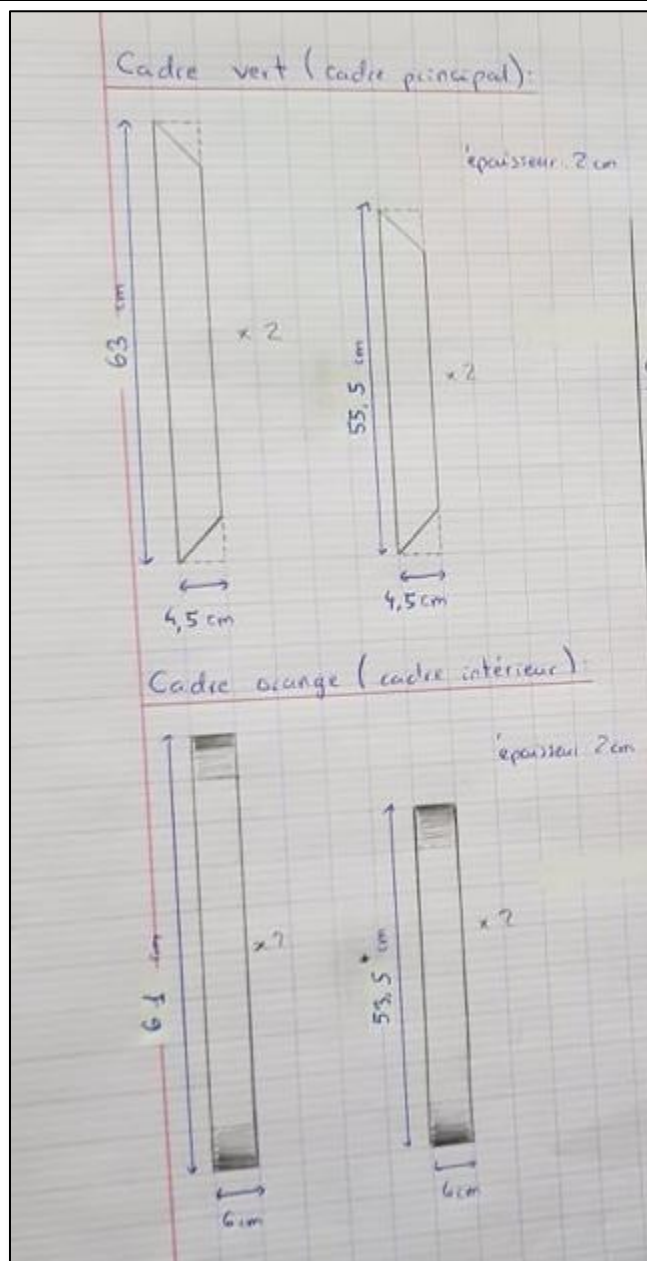 Cadre vert (cadre principal):
épaisseur 2 cm
63 cm
x 2
55,5 cm
x 2
4,5 cm
4,5 cm
Cadre orange (cadre intérieur):
épaisseur 2 cm
61 cm
x 2
53,5 cm
x 2
6 cm
6 cm